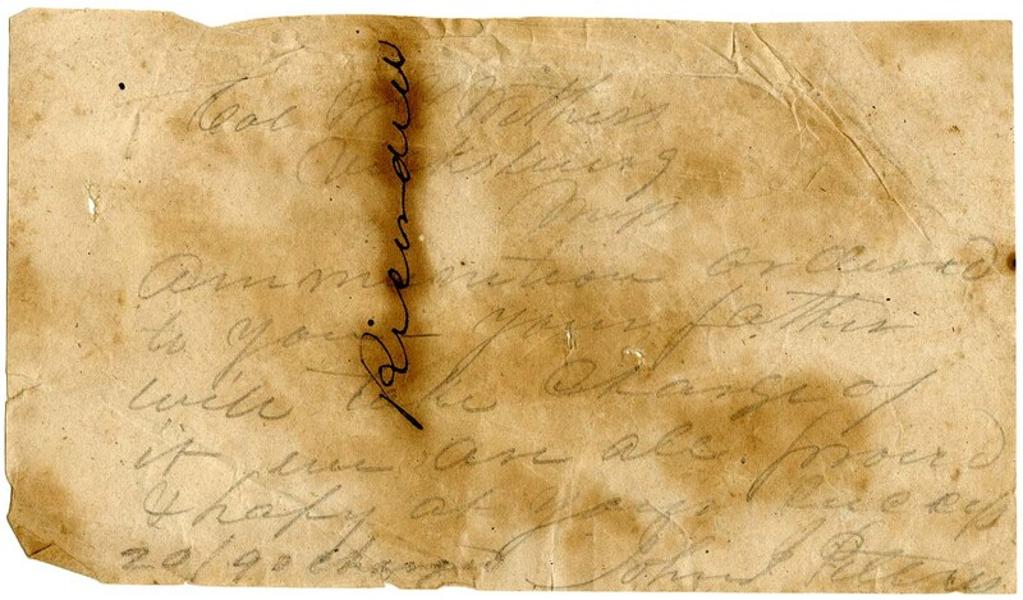 Col W T Withers
Vicksburg
Miss
Ammunition ordered
to you - your father
will take charge of
it we are all proud
& hapy at your
20/90 charged John J Pettus